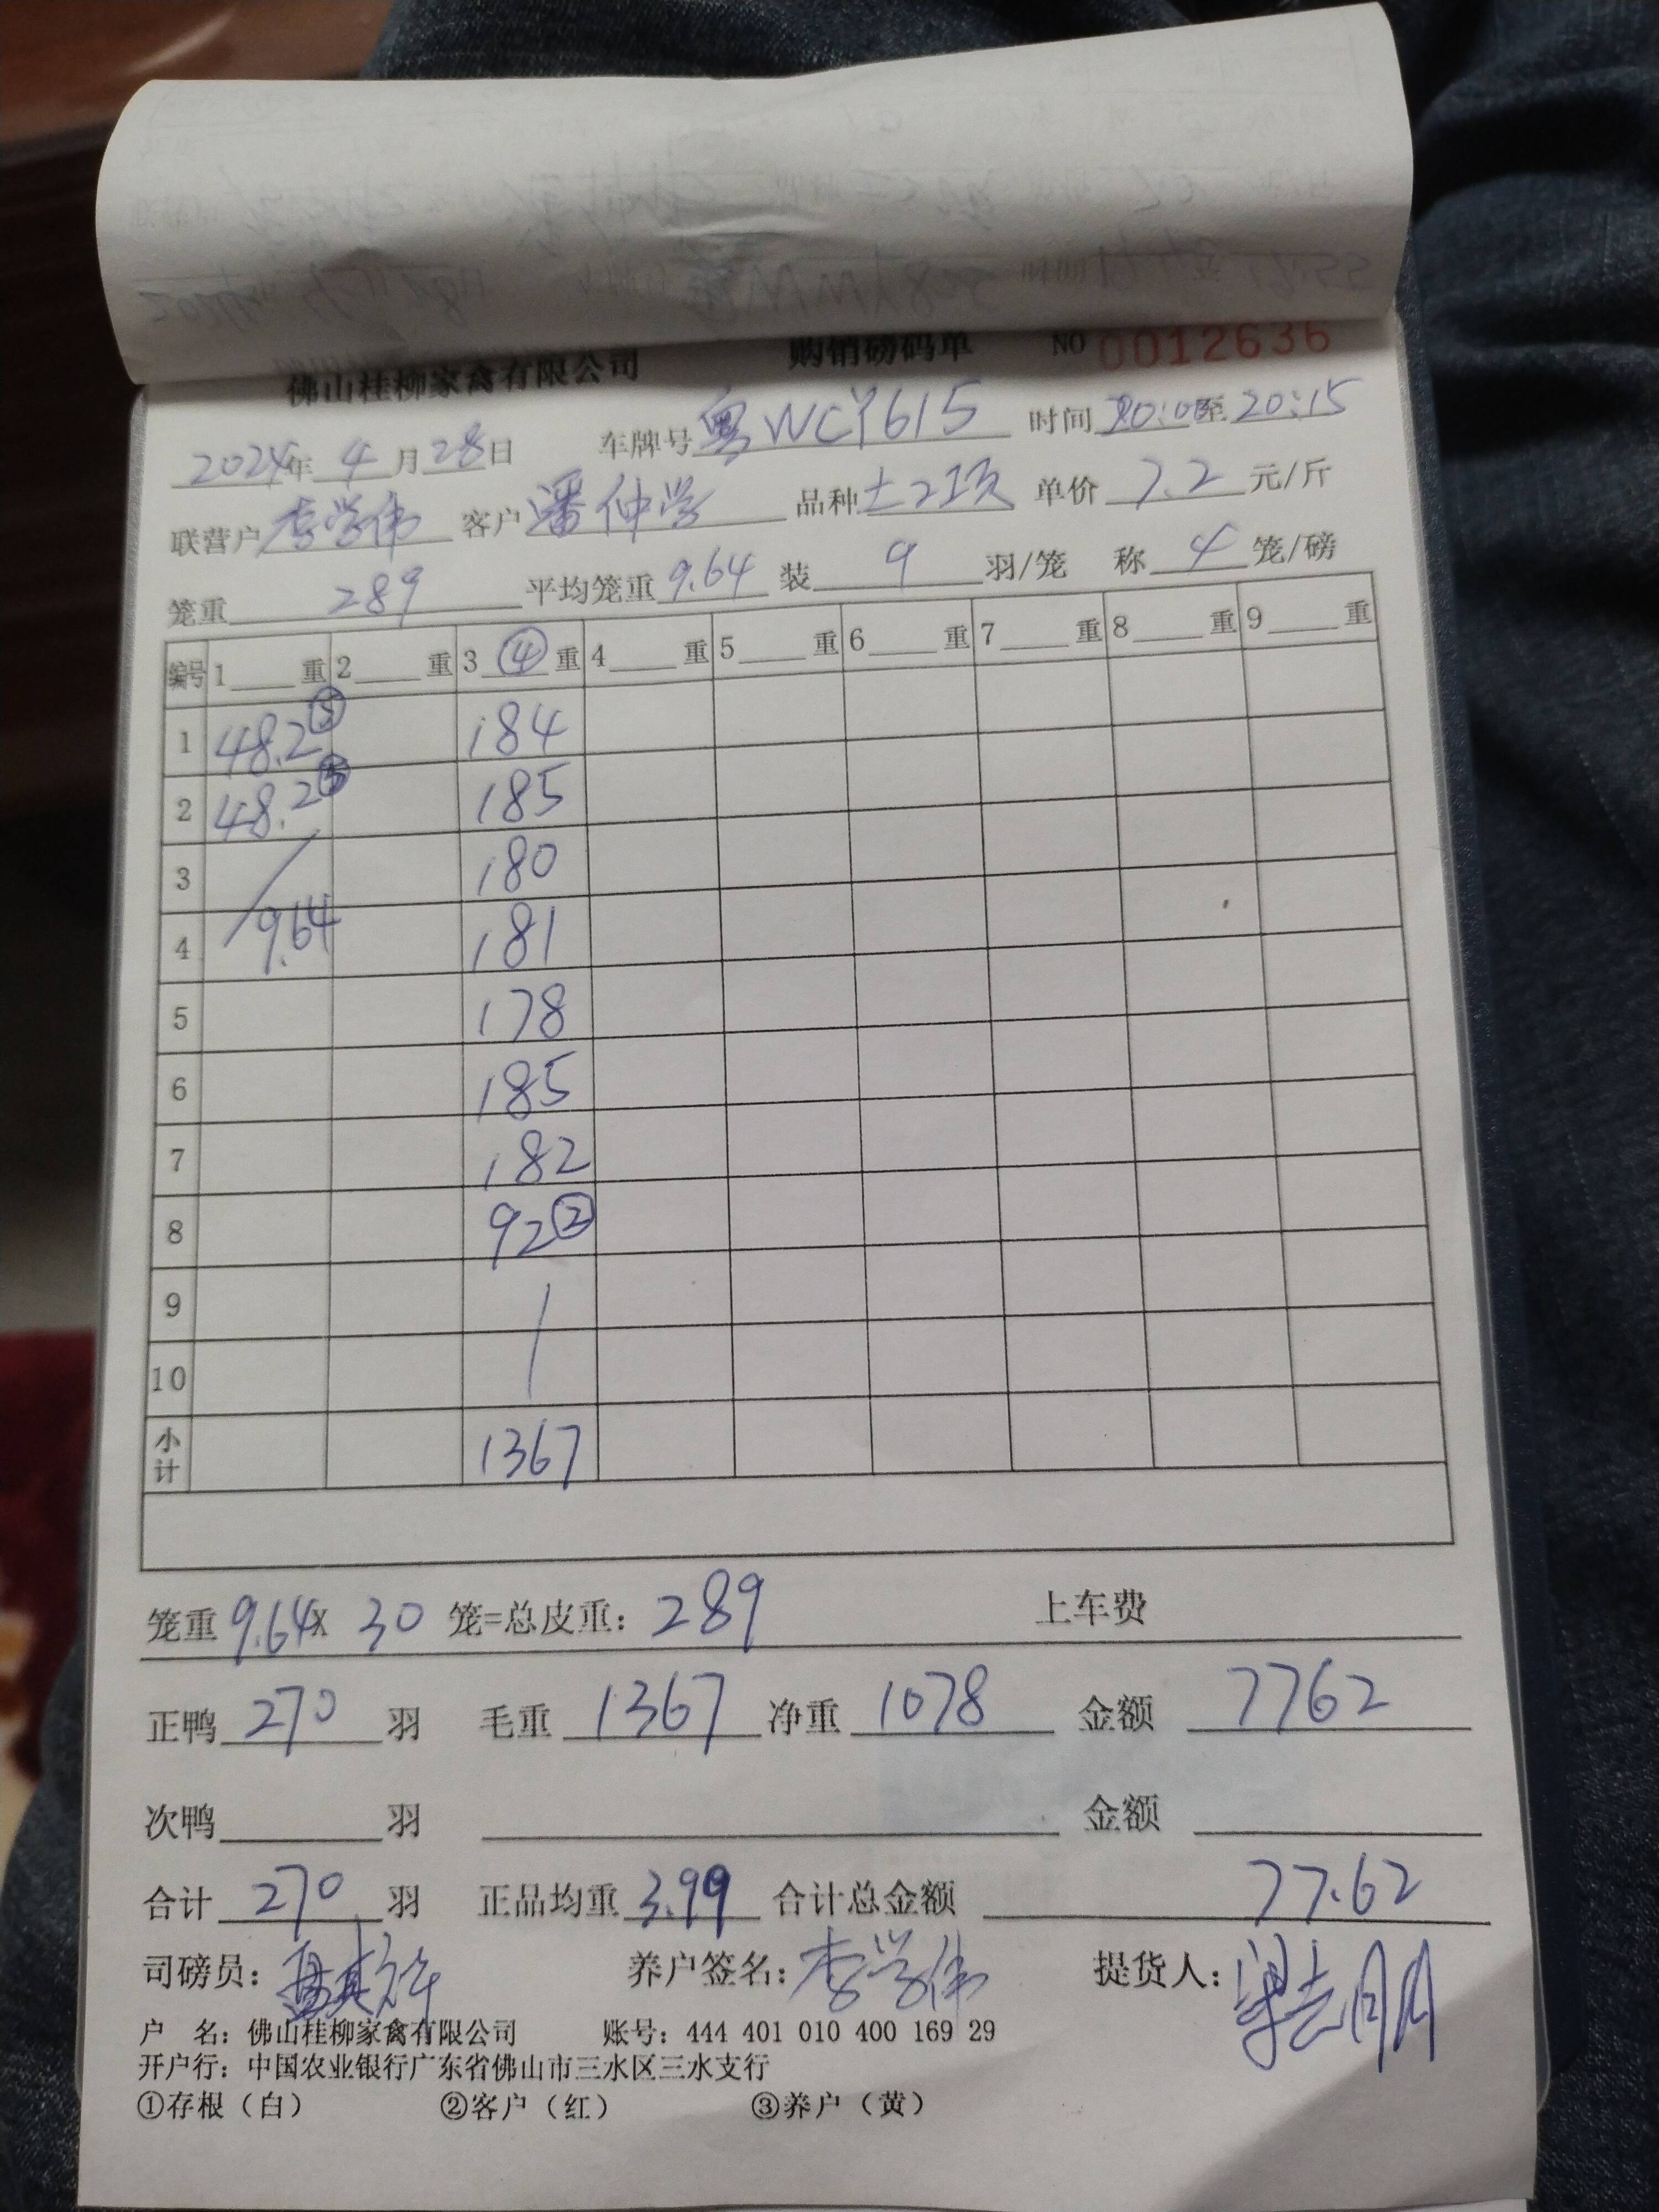 佛山桂柳家禽有限公司 购销磅码单 NO 0012636
2024年 4月28日 车牌号 粤WCY615 时间 20:0 至 20:15
联营户 李学伟 客户 潘仲学 品种 土2项 单价 7.2 元/斤
笼重 289 平均笼重 9.64 装 9 羽/笼 称 4 笼/磅
编号 1 重 2 重 3 ④ 重 4 重 5 重 6 重 7 重 8 重 9 重
1 48.2⑤ 184
2 48.2⑤ 185
3 180
4 9.64 181
5 178
6 185
7 182
8 92②
9
10
小计 1367
笼重 9.64 x 30 笼=总皮重: 289 上车费
正鸭 270 羽 毛重 1367 净重 1078 金额 7762
次鸭 羽 金额
合计 270 羽 正品均重 3.99 合计总金额 77.62
司磅员: 养户签名: 李学伟 提货人: 梁志明
户 名: 佛山桂柳家禽有限公司 账号: 444 401 010 400 169 29
开户行: 中国农业银行广东省佛山市三水区三水支行
①存根（白） ②客户（红） ③养户（黄）